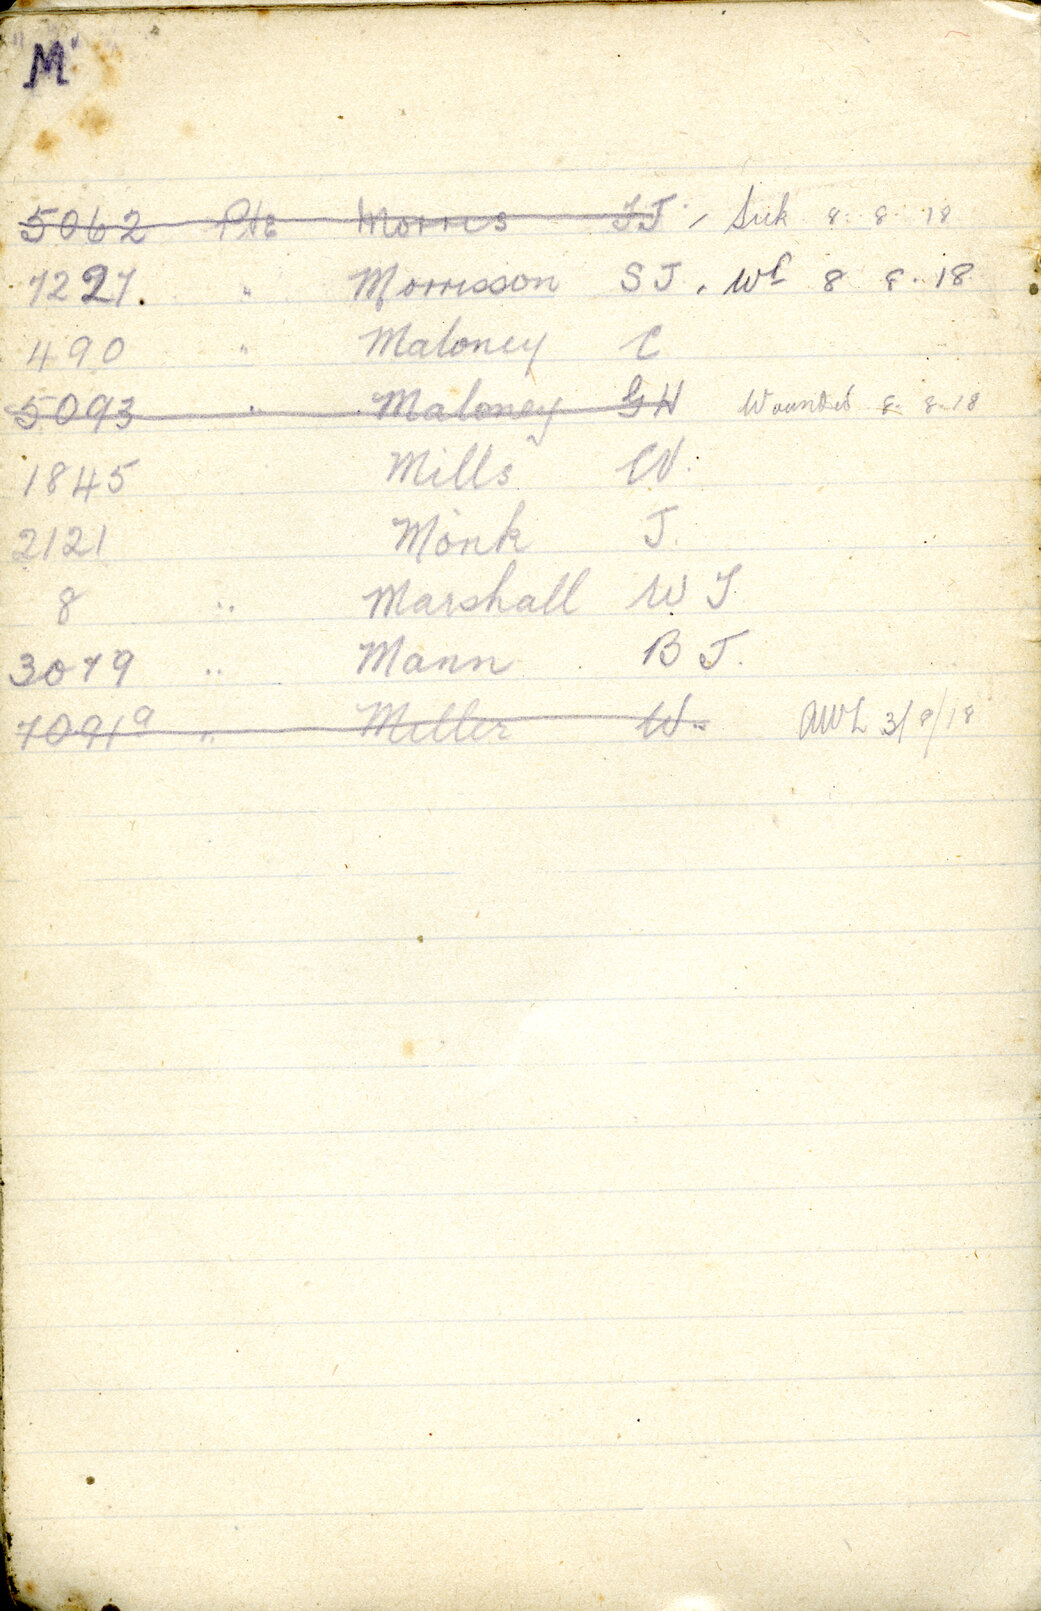 "M"
5062 Pte Morris F.J. Sick 8. 8. 18
7227. " Morrisson S J. Wd 8 8. 18
490 " Maloney C
5093 " Maloney G H Wounded 8. 8. 18
1845 Mills W.
2121 Monk J.
8 " Marshall W J
3079 " Mann B J.
7091a " Miller W. AWL 3/8/18